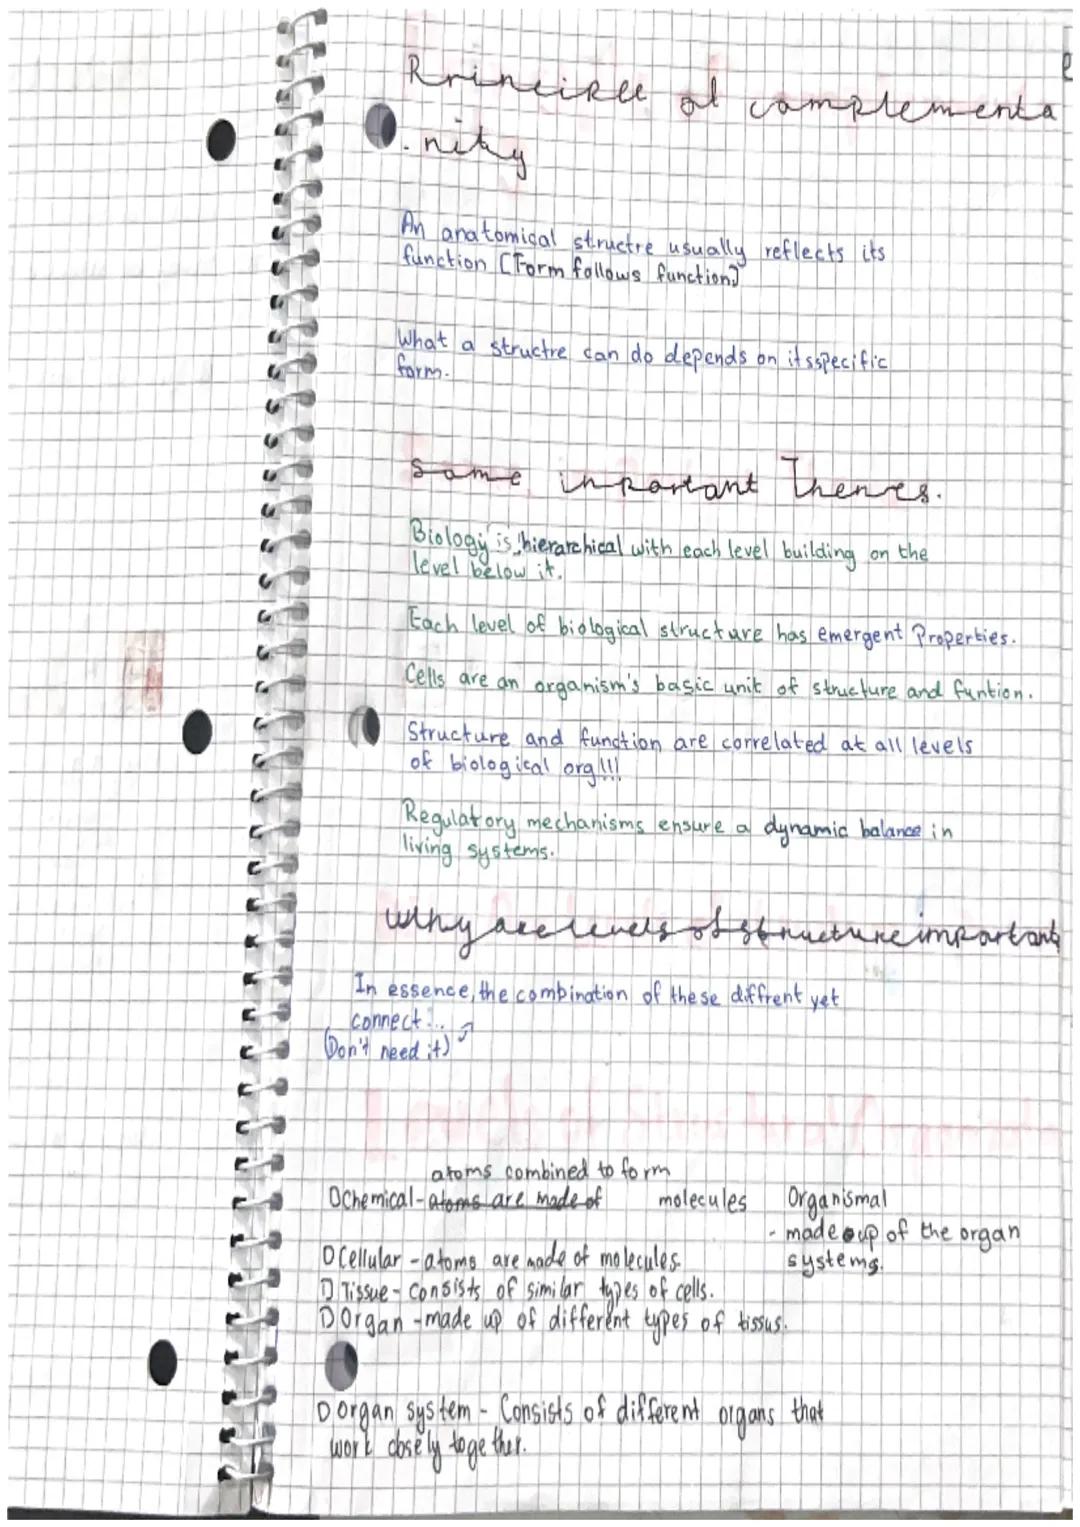 Principle of complementa
. nity
An anatomical structre usually reflects its
function [Form follows function]
What a structre can do depends on its specific
form.
Some inportant Themes.
Biology is hierarchical with each level building on the
level below it.
Each level of biological structure has emergent Properties.
Cells are an organism's basic unit of structure and funtion.
Structure and function are correlated at all levels
of biological org!!!
Regulatory mechanisms ensure a dynamic balance in
living systems.
Why are levels of structure important
In essence, the combination of these diffrent yet
connect...
(Don't need it)
atoms combined to form
Chemical - atoms are made of molecules
Organismal
- made up of the organ
systems.
Cellular - atoms are made of molecules.
Tissue - consists of similar types of cells.
Organ - made up of different types of tissus.
Organ system - Consists of different organs that
work closely together.